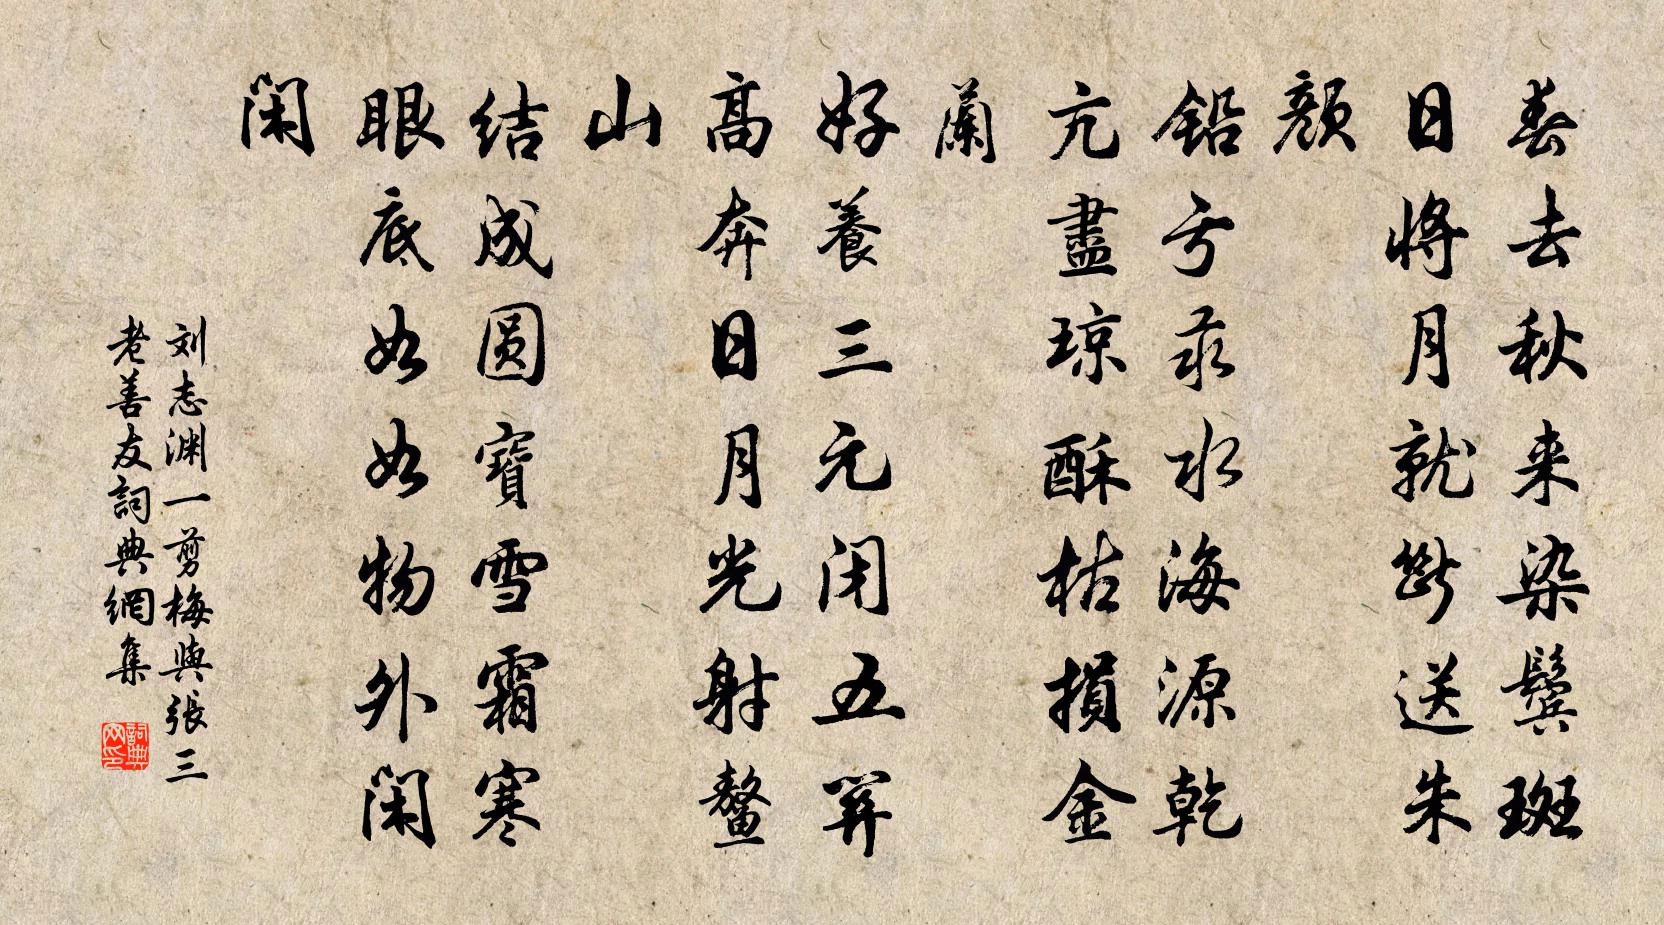 春去秋来染鬓斑
日将月就断送朱
颜
铅亏汞水海源乾
亢盡琼酥枯損金
蘭
好養三元闭五关
高奔日月光射鳌
山
结成圆寶雪霜寒
眼底如如物外闲
闲
刘志渊一剪梅與張三
老善友詞典網集
詞典
网印